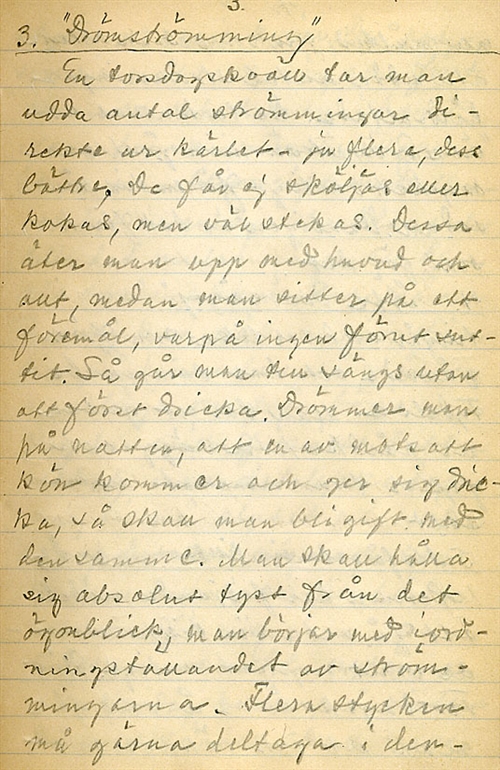 3.
3. "Drömströmming"
En torsdagskväll tar man
udda antal strömmingar di-
rekte ur kärlet - ju flera, dess
bättre. De får ej sköljas eller
kokas, men väl stekas. Dessa
äter man upp med huvud och
allt, medan man sitter på ett
föremål, varpå ingen förut sut-
tit. Så går man till sängs utan
att först dricka. Drömmer man
på natten, att en av motsatt
kön kommer och ger sig dric-
ka, så skall man bli gift med
den samme. Man skall hålla
sig absolut tyst från det
ögonblick, man börjar med iord-
ningställandet av ström-
mingarna. Flera stycken
må gärna deltaga i den-